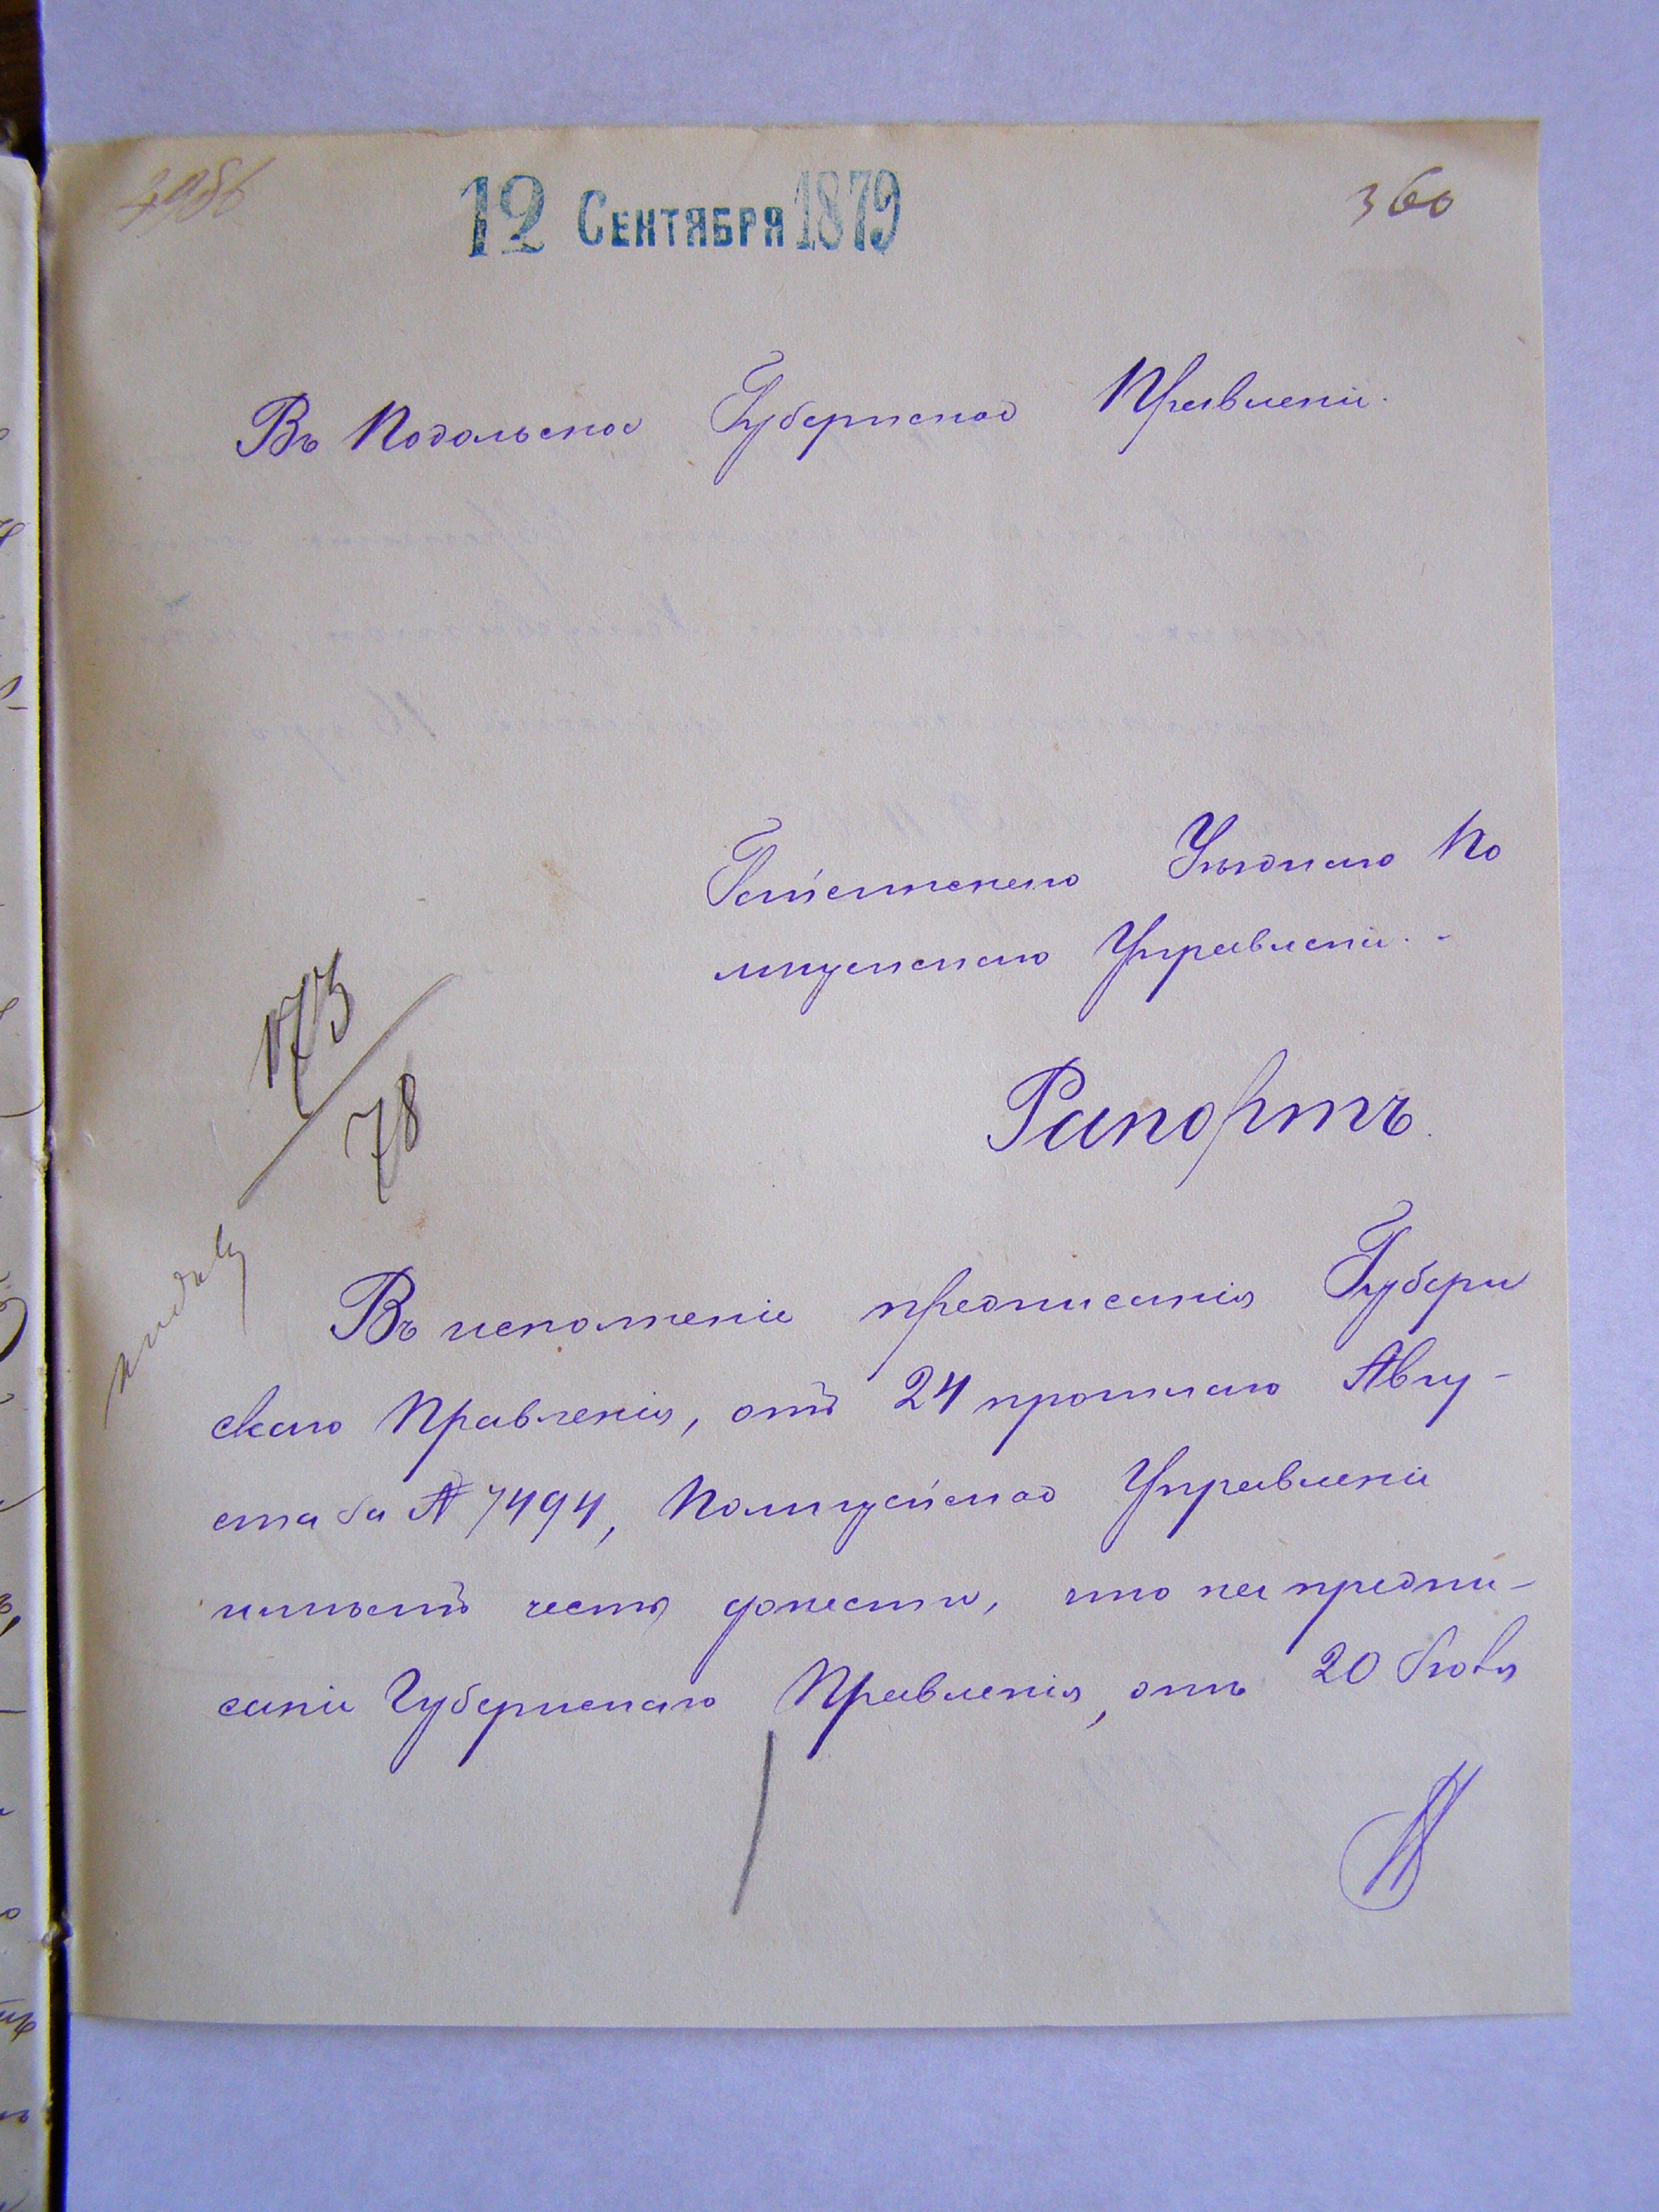 12 СЕНТЯБРЯ 1879
360
Въ Подольское Губернское Правленіе.
Гайсинскаго Уѣзднаго По
лицейскаго Управленія. -
173
78
Рапортъ.
Въ исполненіе предписанія Губерн
скаго Правленія, отъ 24 прошлаго Авгу-
ста за № 7494, Полицейское Управленіе
имѣетъ честь донести, что на предпи-
саніе Губернскаго Правленія, отъ 20 Іюля